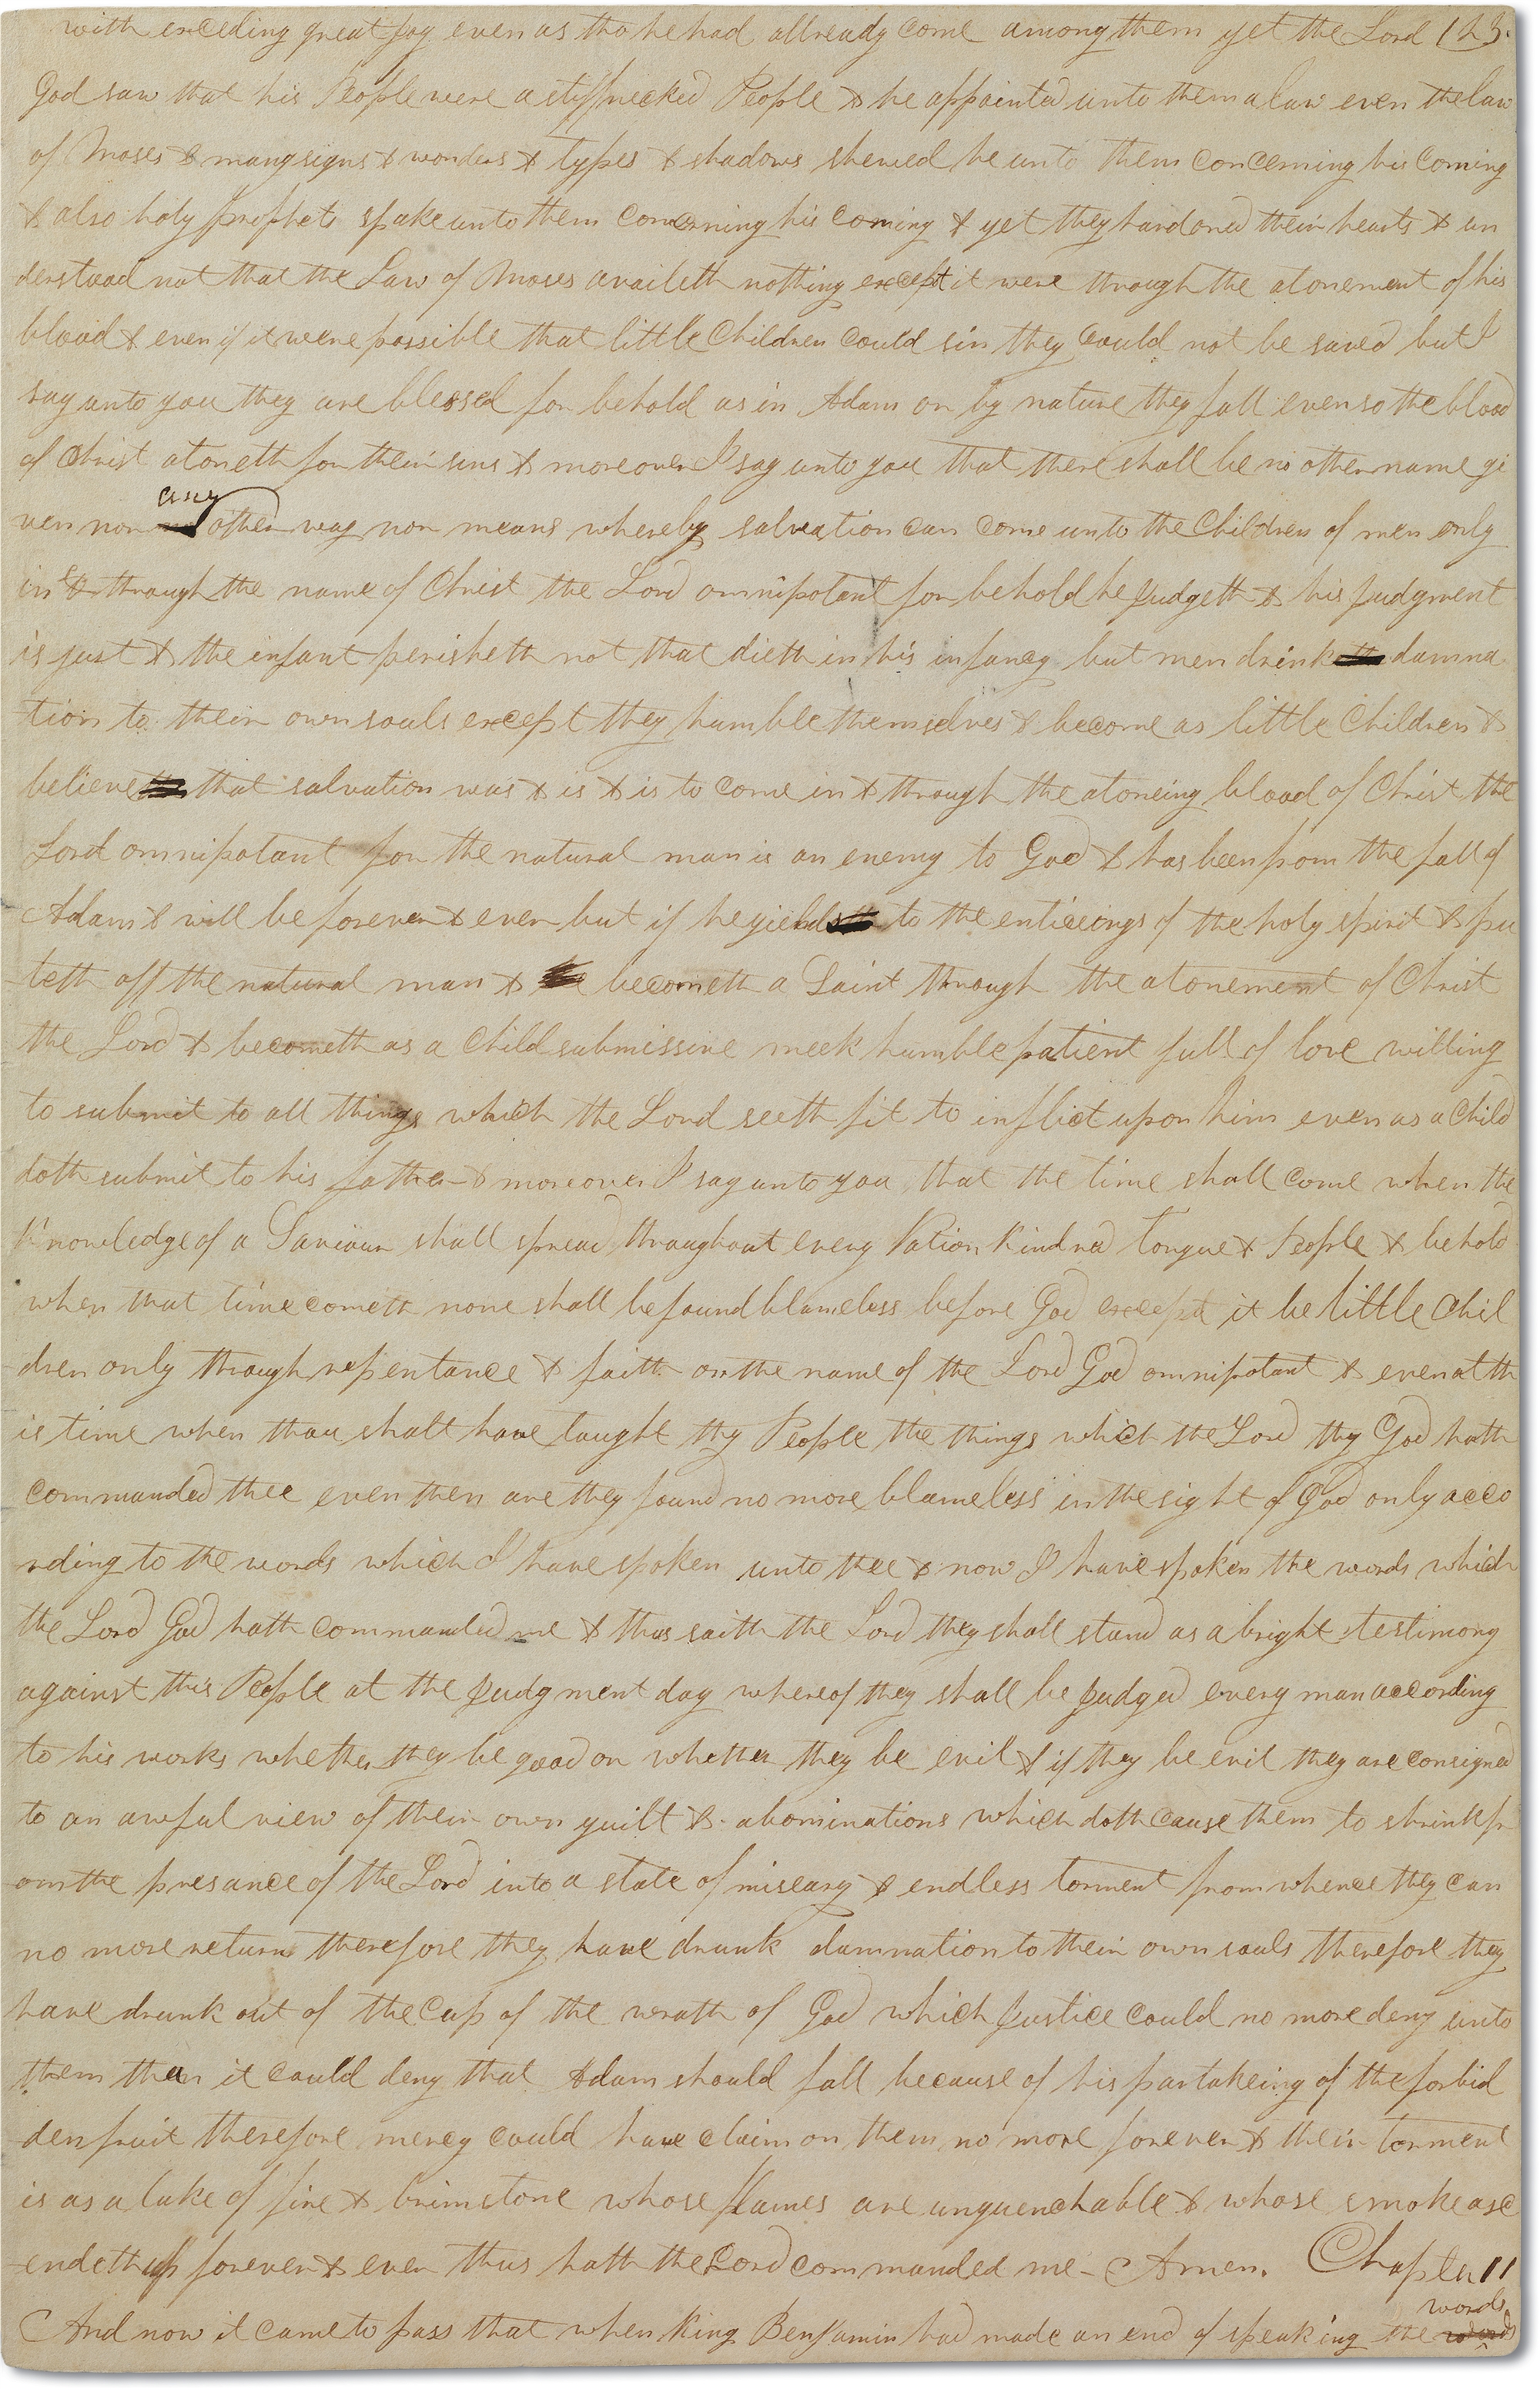 with exceding great joy even as tho he had allready come among them yet the Lord 123.
God saw that his People were a stiffnecked People & he appointed unto them a law even the law
of Moses & many signs & wonders & types & shadows shewed he unto them concerning his coming
& also holy prophets spake unto them concerning his coming & yet they hardoned their hearts & un
derstood not that the Law of Moses availeth nothing except it were through the atonement of his
blood & even if it were possible that little Children could sin they could not be saved but I
say unto you they are blessed for behold as in Adam or by nature they fall even so the blood
of Christ atoneth for their sins & moreover I say unto you that there shall be no other name gi
any
ven nor other way nor means whereby salvation can come unto the Children of men only
in & through the name of Christ the Lord omnipotant for behold he judgeth & his judgment
is just & the infant perisheth not that dieth in his infancy but men drinketh damna
tion to their own souls except they humble themselves & become as little Children &
believeth that salvation was & is & is to come in & through the atoneing blood of Christ the
Lord omnipotant for the natural man is an enemy to God & has been from the fall of
Adam & will be forever & ever but if he yields to the enticeings of the holy spirit & pu
teth off the natural man & becometh a Saint through the atonement of Christ
the Lord & becometh as a Child submissive meek humble patient full of love willing
to submit to all things which the Lord seeth fit to inflict upon him even as a Child
doth submit to his father & moreover I say unto you that the time shall come when the
knowledge of a Saviour shall spread throughout every Nation Kindred Tongue & People & behold
when that time cometh none shall be found blameless before God except it be little Chil
dren only through repentance & faith on the name of the Lord God omnipotant & even at th
is time when thou shalt have taught thy People the things which the Lord thy God hath
commanded thee even then are they found no more blameless in the sight of God only acco
rding to the words which I have spoken unto thee & now I have spoken the words which
the Lord God hath commanded me & thus saith the Lord they shall stand as a bright testimony
against this People at the judgment day whereof they shall be judged every man according
to his works whether they be good or whether they be evil & if they be evil they are consigned
to an awful view of their own guilt & abominations which doth cause them to shrink fr
om the presance of the Lord into a state of miseary & endless torment from whence they can
no more return therefore they have drunk damnation to their own souls therefore they
have drunk out of the cup of the wrath of God which justice could no more deny unto
them than it could deny that Adam should fall because of his partakeing of the forbid
den fruit therefore mercy could have claim on them no more forever & their torment
is as a lake of fire & brimstone whose flames are unquenchable & whose smoke asc
endeth up forever & ever thus hath the Lord commanded me- Amen. Chapter 11
words
And now it came to pass that when King Benjamin had made an end of speaking the words